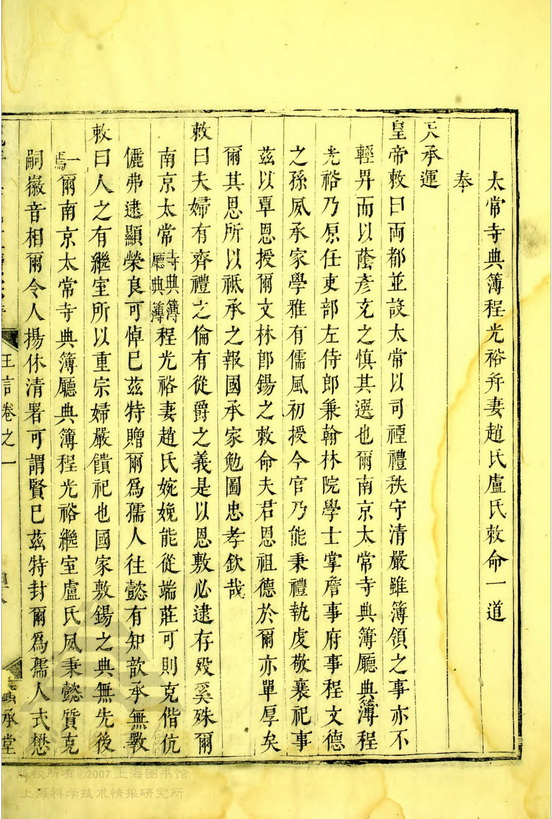 太常寺典簿程光裕并妻趙氏盧氏敕命一道
奉
天承運
皇帝敕曰兩都並設太常以司禋禮秩守清嚴雖簿領之事亦不
輕畀而以蔭彥充之慎其選也爾南京太常寺典簿廳典簿程
光裕乃原任吏部左侍郎兼翰林院學士掌詹事府事程文德
之孫夙承家學雅有儒風初授今官乃能秉禮執虔敬襄祀事
茲以覃恩授爾文林郎錫之敕命夫君恩祖德於爾亦單厚矣
爾其思所以祇承之報國承家勉圖忠孝欽哉
敕曰夫婦有齊禮之倫有從爵之義是以恩敷必逮存歿奚殊爾
南京太常寺典簿廳典簿程光裕妻趙氏婉娩能從端莊可則克偕伉
儷弗逮顯榮良可悼已茲特贈爾爲孺人往懿有知歆承無斁
敕曰人之有繼室所以重宗婦嚴饋祀也國家敷錫之典無先後
一焉爾南京太常寺典簿廳典簿程光裕繼室盧氏夙秉懿質克
嗣徽音相爾令人揚休清署可謂賢已茲特封爾爲孺人式懋
王言卷之一
承堂
版权所有©2007上海图书馆
上海科学技术情报研究所